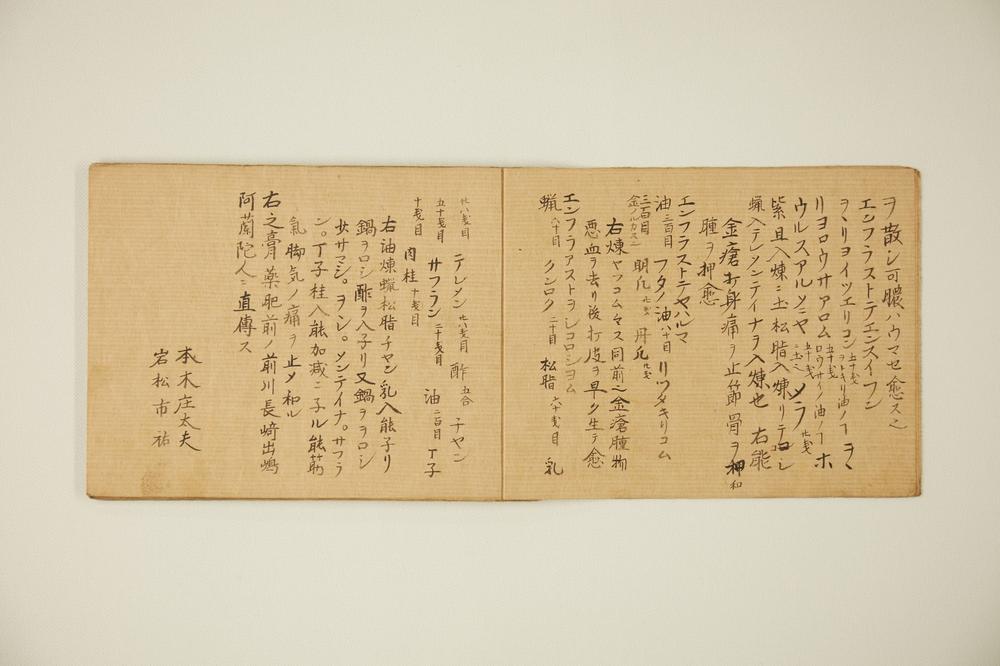 ヲ散シ可膿ハウマセ愈ス之
エンフラストテエンスイフン
ヲヽリヨイツエリコン 五十戔 ヲトキリ油ノ丁 ヲヽ
リヨロウサアロム 五十戔 ロウサイノ油ノ丁 ホ
ウルスアルメニヤ 五十戔 ニ土之 メラ 廿戔
紫且入煉ニ土松脂入煉リテヨシ
蝋入テレメンテイナヲ入煉也 右能
金瘡打身痛ヲ止節骨ヲ和
腫ヲ押愈
エンフラストテヤハルマ
油 三百目 フタノ油 八十目 リツタキリコム
三百目 金ノルカス 明凡 九戔 丹凡 九戔
右煉ヤツコムヤス同前之金瘡腫物
悪血ヲ去リ後打皮ヲ早ク生テ愈
エンフラアストヲレコロシヨム
蝋 八十目 クンロク 二十目 松脂 六十戔目 乳
廿八戔目 テレメン 廿八戔目 酢 五合 チヤン
五十戔目 サフラン 二十戔目 油 二百目 丁子
十戔目 肉桂 十戔目
右油煉蝋松脂チヤン乳入能子リ
鍋ヲロシ酢ヲ入子リ又鍋ヲヲロシ
サマシ。ヲン。メンテイナ。サフラ
ン。丁子桂入能加減ニ子ル能筋
氣脚気ノ痛ヲ止メ和ル
右之膏藥肥前ノ前川長崎出嶋
阿蘭陀人ニ直傳ス
本木庄太夫
岩松市祐